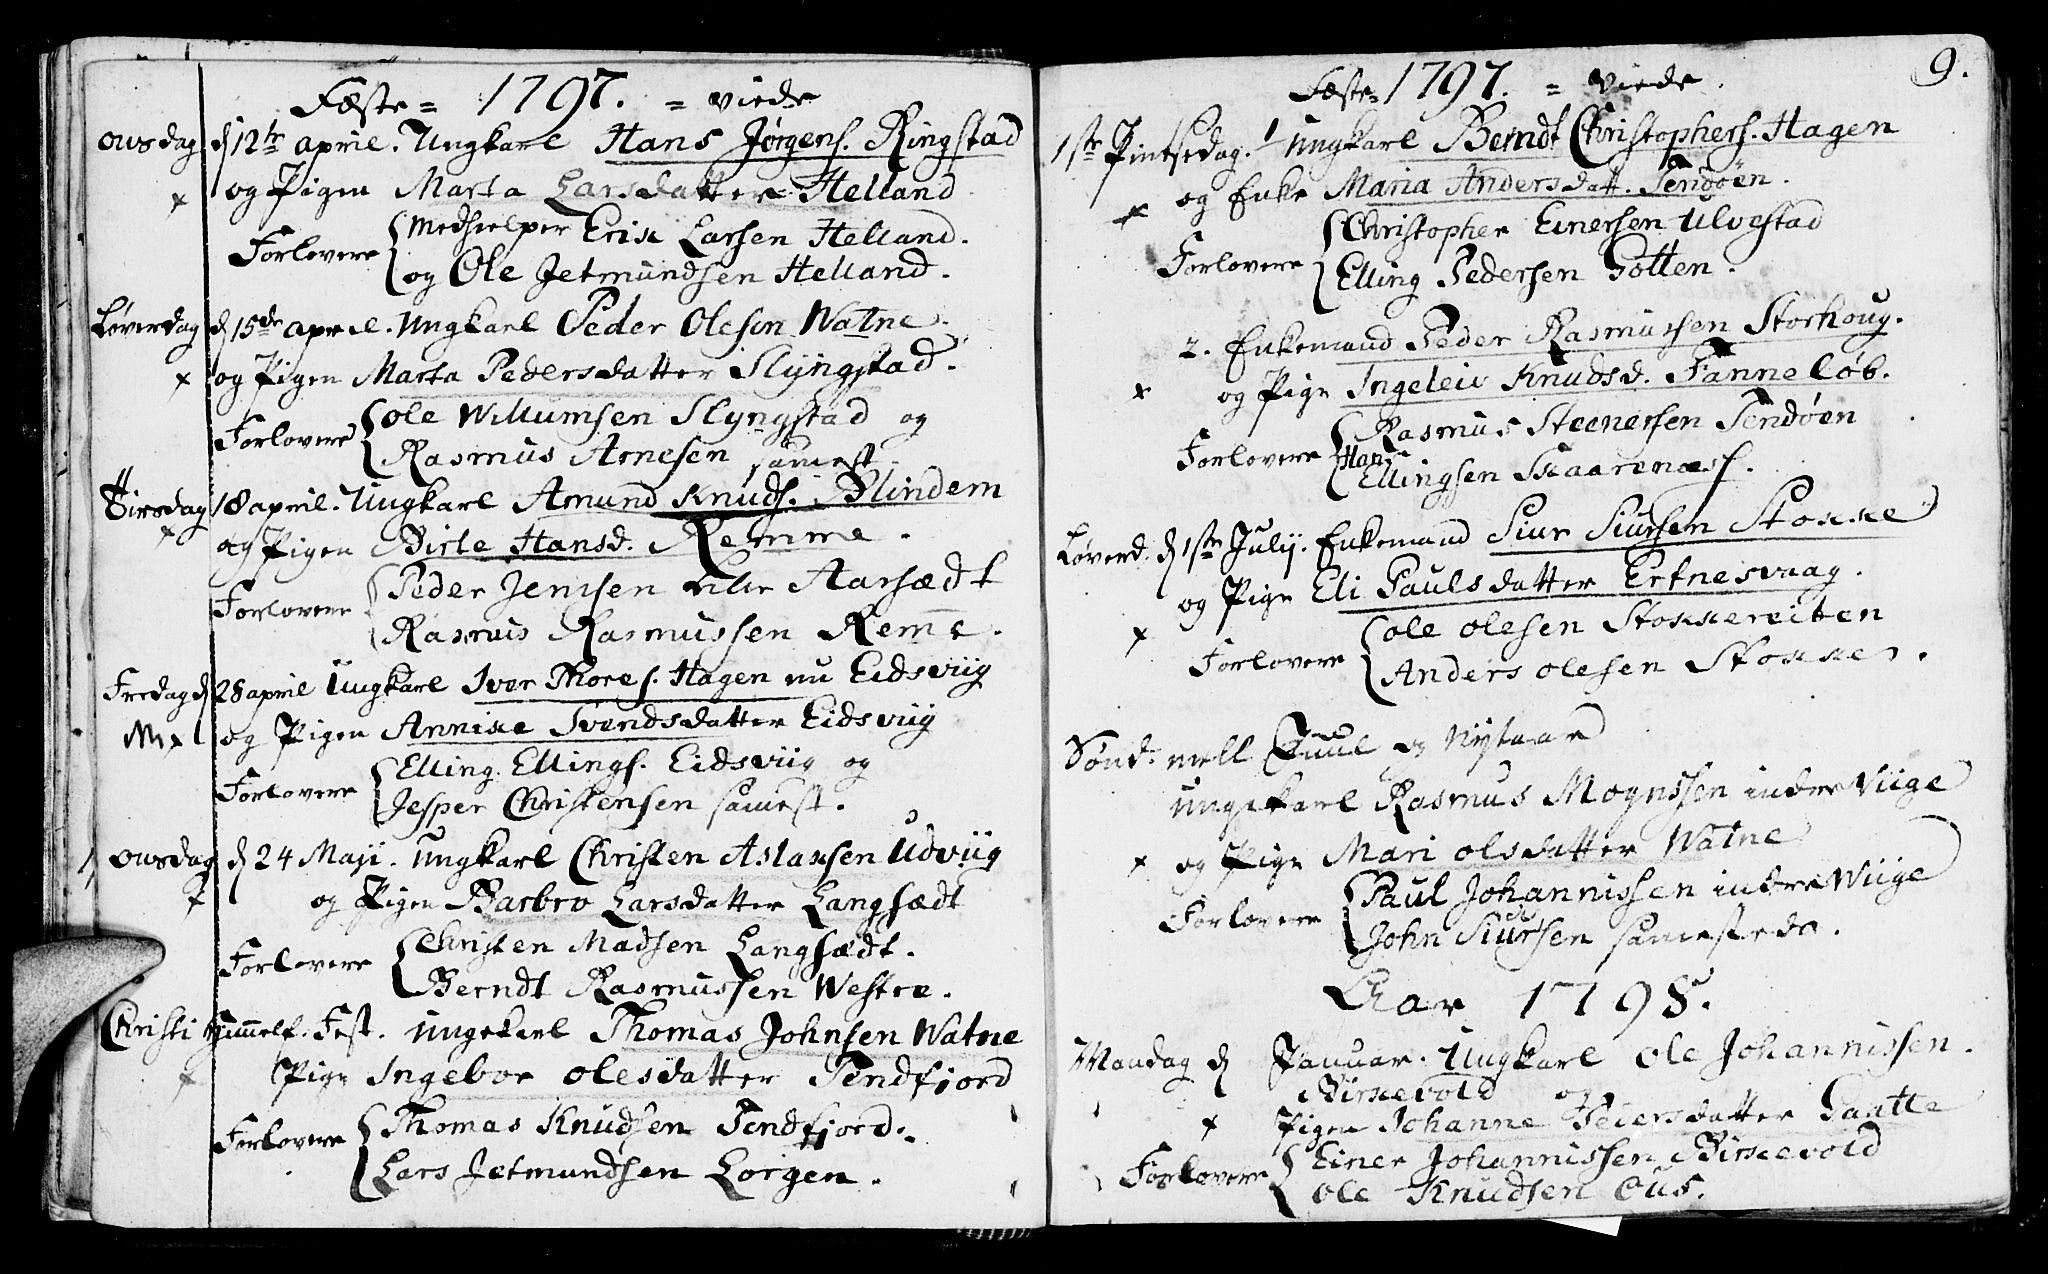 Fæste = 1797. = viede
Onsdag d 12te april. Ungkarl Hans Jørgens. Ringstad
og Pigen Marta Larsdatter Helland
Forlovere Medhielper Erik Larsen Helland.
og Ole Jetmundsen Helland.
Løverdag d 15de april. Ungkarl Peder Olesen Watne.
x og Pigen Marta Pedersdatter Slyngstad.
Forlovere Ole Willumsen Slyngstad og
Rasmus Arnesen samest.
Tirsdag 18 april. Ungkarl Amund Knuds. Blindem
x og Pigen Birte Hansd. Remme.
Forlovere Peder Jensen Aarsædt
Rasmus Rasmussen Reme.
Fredag d 28 april Ungkarl Iver Thores. Hagen nu Eidsviig
x og Pigen Annike Svendsdatter Eidsviig
Forlovere Elling Ellings. Eidsviig og
Jesper Christensen samest.
Onsdag d 24 Maji. Ungkarl Christen Aslaksen Udviig
og Pigen Barbro Larsdatter Langsædt
Forlovere Christen Madsen Langsædt.
Berndt Rasmussen Westre.
Christi Himmelf. Fest. Ungekarl Thomas Johnsen Watne
x Pige Ingebor Olesdatter Tendfjord
Forlovere Thomas Knudsen Tendfjord.
Lars Jetmundsen Lorgen.
9.
Fæste = 1797. = viede.
1ste Pintsedag. 1 Ungkarl Berndt Christophers. Hagen
x og Enke Maria Andersdatt. Sendøen.
Forlovere Christopher Einersen Ulvestad
Elling Pedersen Gotten.
2. Enkemand Peder Rasmussen Storhoug.
x og Pige Ingeleiv Knudsd. Fanneløb.
Forlovere Rasmus Steenersen Sendøen
Hans Ellingsen Skaarenæss.
Løverd. d 1ste Julij. Enkemand Siur Siursen Stokke
og Pige Eli Paulsdatter Erknesvaag.
x
Forlovere Ole Olesen Stokkereiten
Anders Olesen Stokke.
Sønd. mell Juul og Nytaar
Ungekarl Rasmus Mognssen indre Viige
x og Pige Mari Olsdatter Watne
Forlovere Paul Johannissen indre Wiige
John Siursen samesteds.
Aar 1798.
Mandag d Januar. Ungkarl Ole Johannissen.
Birkevold og
x Pigen Johanne Peiersdatter Gaatte
Forlovere Einer Johannissen Birkevold
Ole Knudsen Ous.